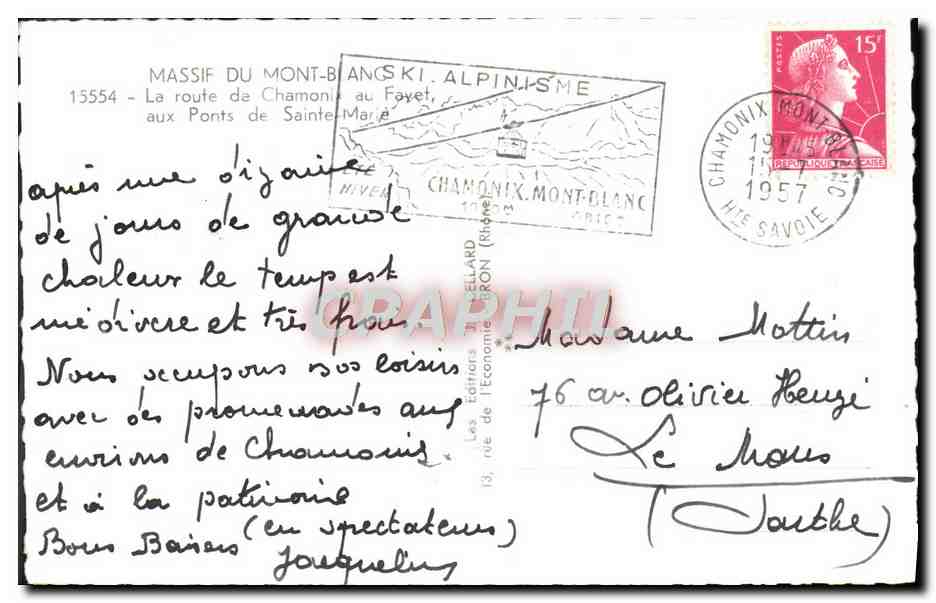 MASSIF DU MONT-BLANC
15554 - La route de Chamonix au Fayet,
aux Ponts de Sainte-Marie
SKI. ALPINISME
ÉTÉ
HIVER
CHAMONIX.MONT-BLANC
CHAMONIX MONT-BLANC
19H15
1957
HTE SAVOIE
POSTES
15F
REPUBLIQUE FRANCAISE
après une dizaine
de jours de grande
chaleur le temps est
médiocre et très frais.
Nous occupons nos loisirs
avec des promenades aux
environs de Chamonix
et à la patinoire
(en spectateurs)
Bons Baisers
Jacqueline
Les Editions J. CELLARD
13, rue de l'Economie BRON (Rhône)
CPAPHIL
Madame Mottin
76 av. Olivier Heuzé
Le Mans
(Sarthe)